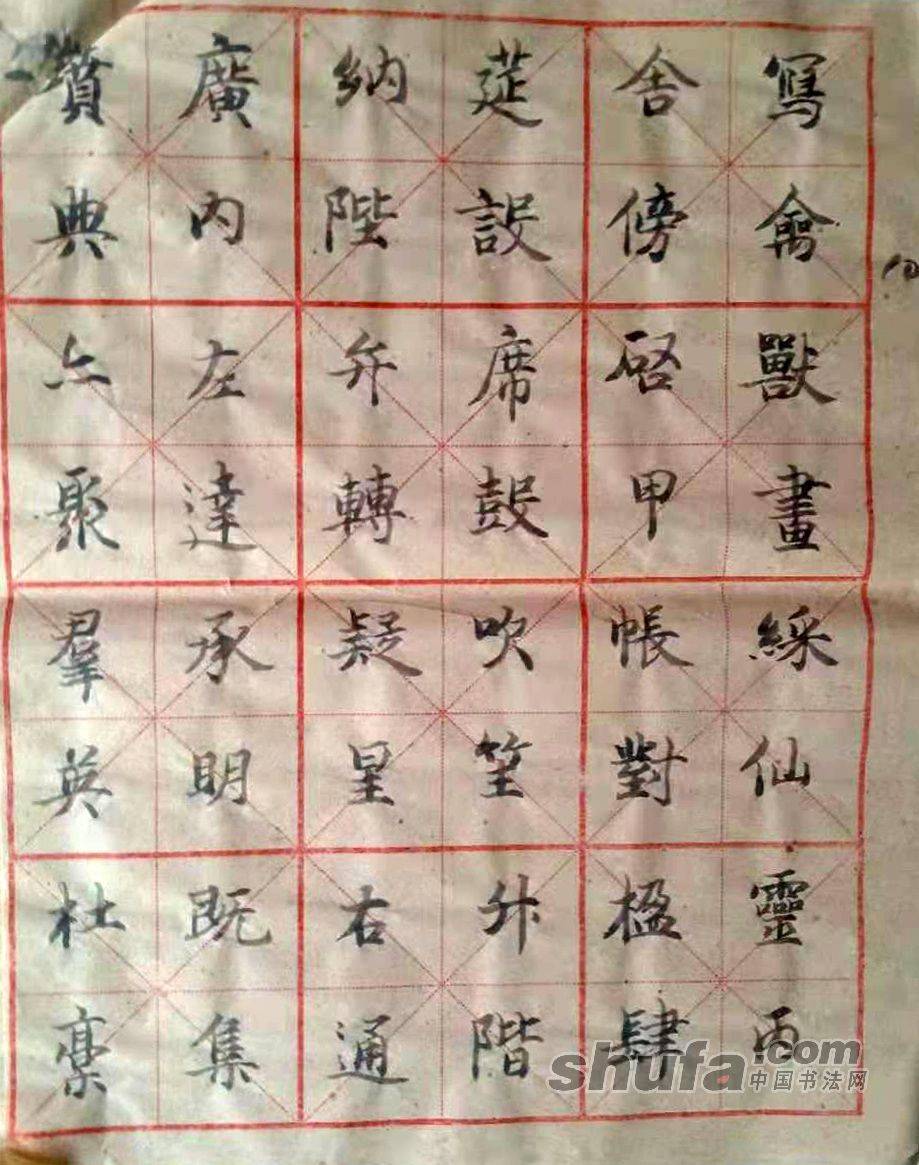 寫禽獸畫綵仙靈丙
舍傍啓甲帳對楹肆
莚設席鼓吹笙升階
納陛弁轉疑星右通
廣內左達承明既集
墳典亦聚羣英杜稾
shufa.com
中国书法网